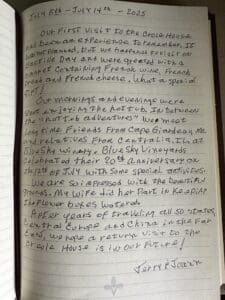 JULY 8th - JULY 14th - 2025
Our First Visit to the Creole House
has been an experience to remember. It
was not planned, but we happened to visit on
Bastille Day and were greeted with a
basket containing French wine, French
bread and French cheese. What a special
gift!
Our mornings and evenings were
spent enjoying the hot tub. In between
the "hot tub adventures" we meet
long time friends from Cape Girardeau, Mo
and relatives from Centralia, IL at
Blue Sky Winery. Blue Sky Vineyards
celebrated their 20th anniversary on
the 12th of July with some special activities.
We are so impressed with the beautiful
grounds. My wife did her part in keeping
the flower boxes watered.
After years of traveling all 50 states,
Central Europe and China in the Far
East, we hope a return visit to the
Creole House is in our future!
Jerry &